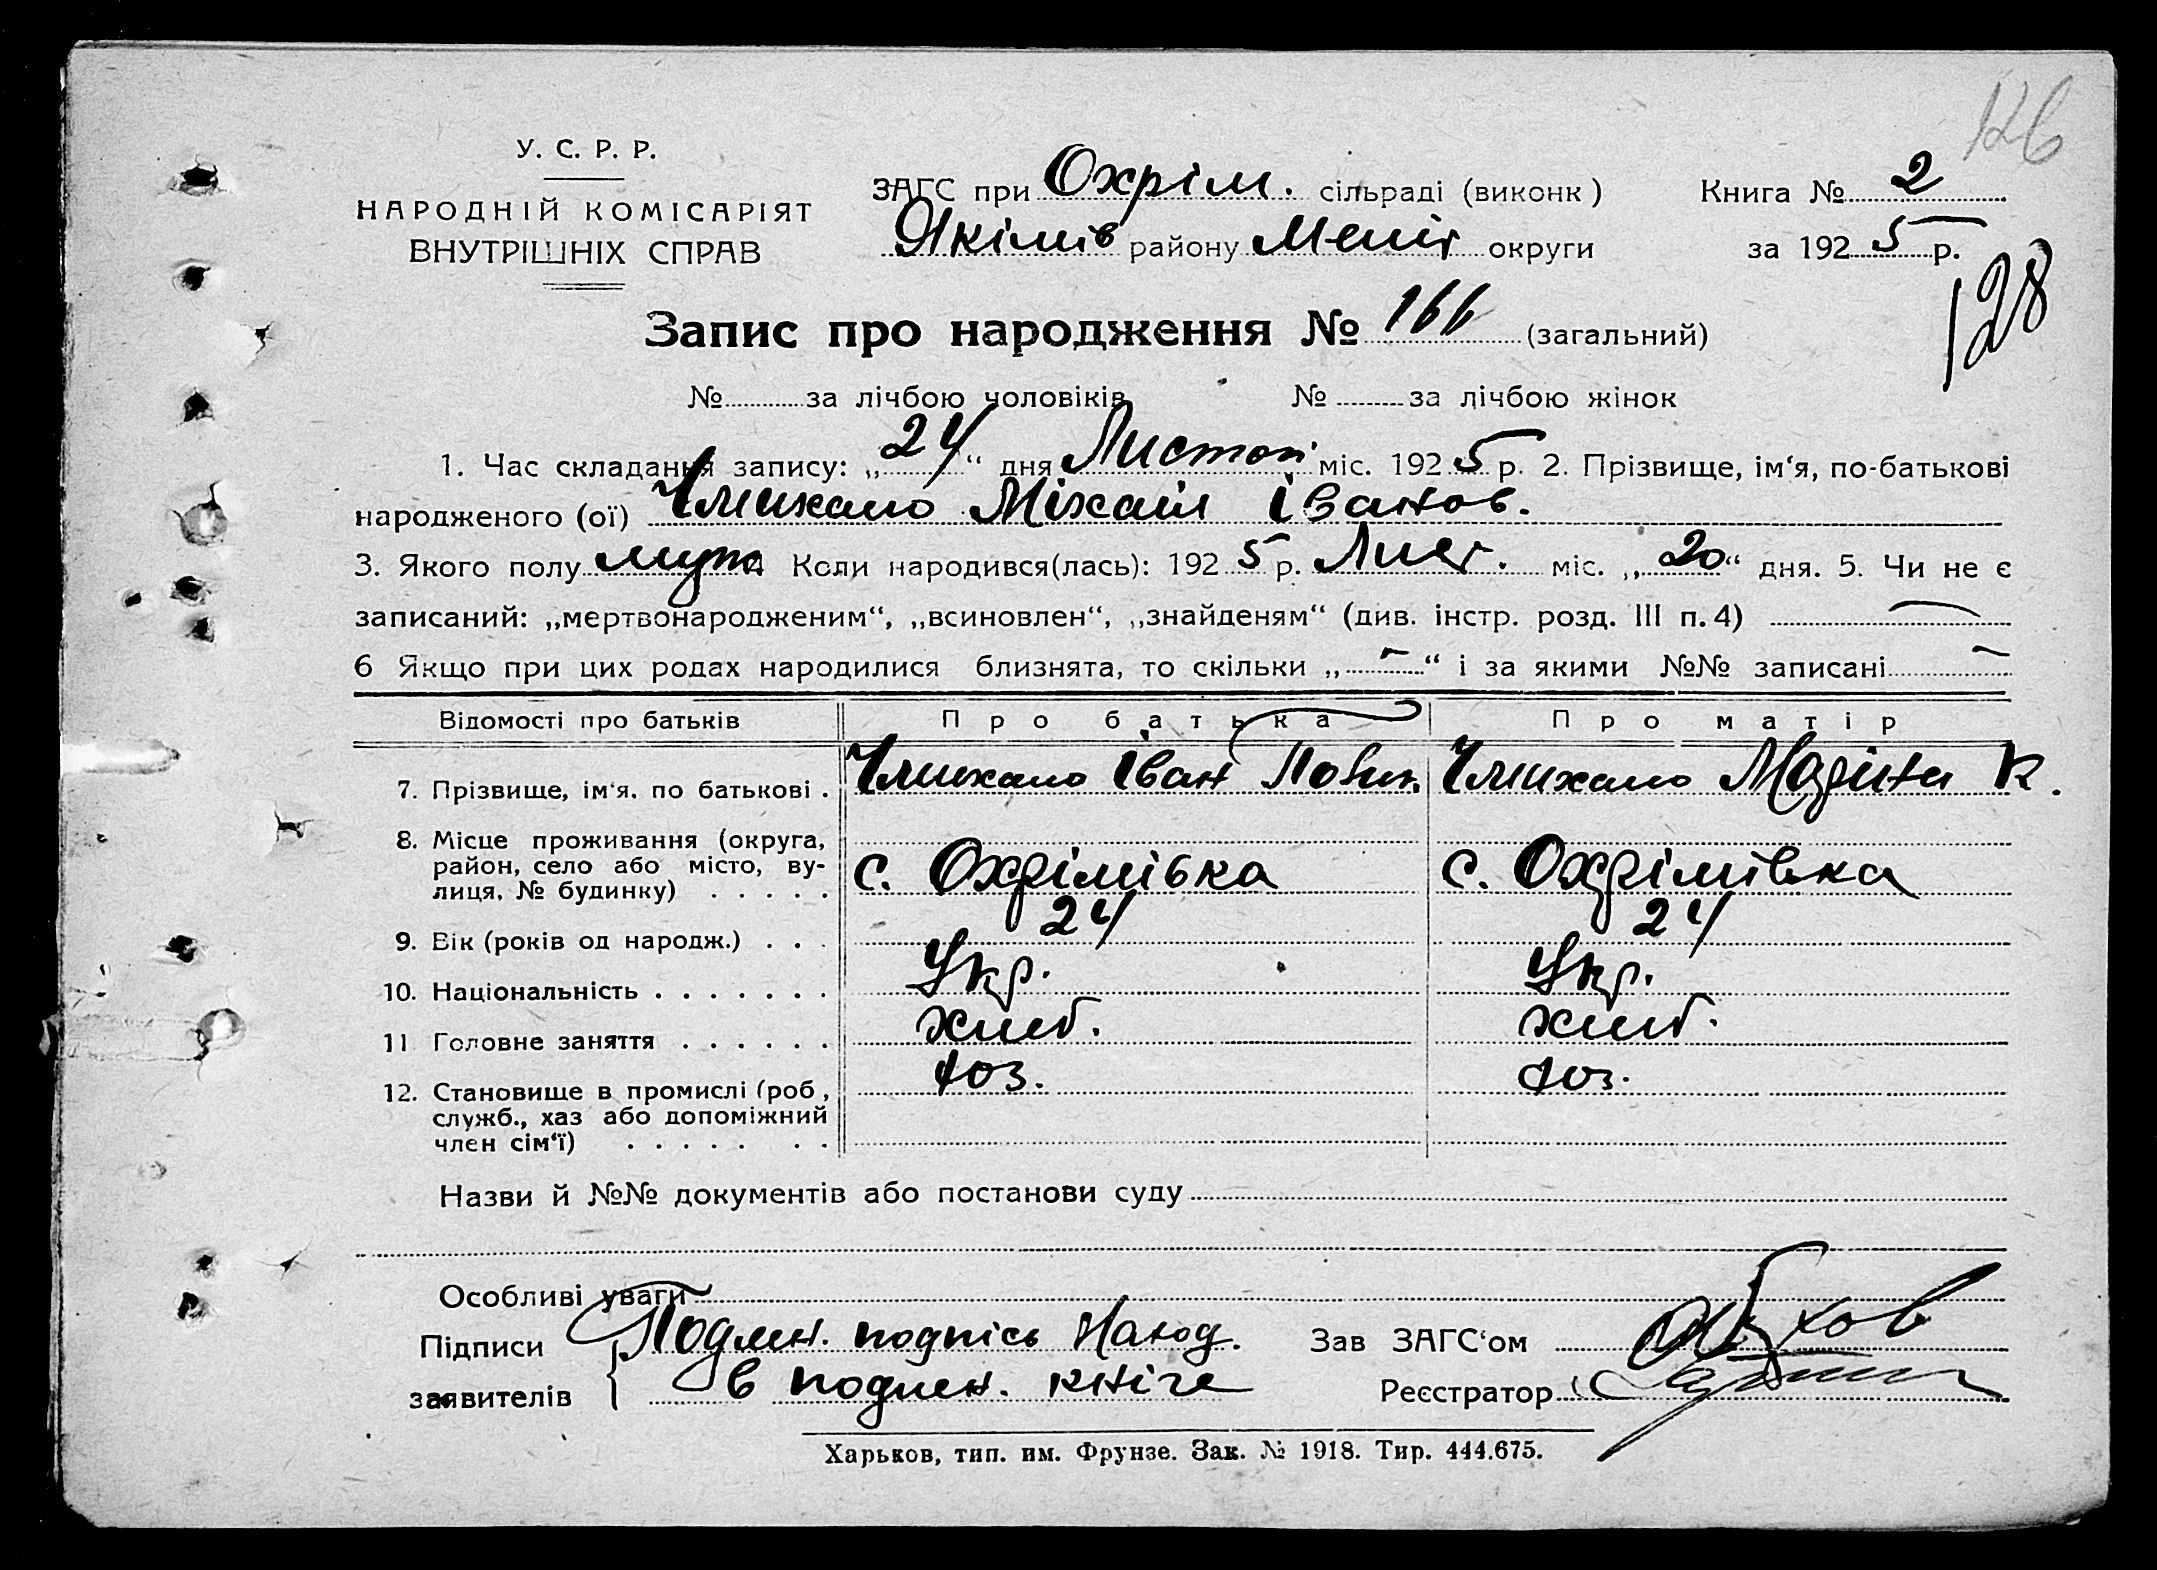 126
У. С. Р. Р.
НАРОДНІЙ КОМІСАРІЯТ
ВНУТРІШНІХ СПРАВ
ЗАГС при Охрім. сільраді (виконк)
Якімів району Меліт округи
Книга № 2
за 1925 р.
128
Запис про народження № 166 (загальний)
№ за лічбою чоловіків № за лічбою жінок
1. Час складання запису: „24“ дня Листоп міс. 1925 р. 2. Прізвище, ім‘я, по-батькові
народженого (ої) Міхаіл Іванов.
3. Якого полу муж 4 Коли народився(лась): 1925 р. Лист. міс. „20“ дня. 5. Чи не є
записаний: „мертвонародженим“, „всиновлен“, „знайденям“ (див. інстр. розд. III п. 4) —
6 Якщо при цих родах народилися близнята, то скільки „—“ і за якими №№ записані —
Відомості про батьків Про батька Про матір
7. Прізвище, ім‘я, по батькові . Іван К.
8. Місце проживання (округа,
район, село або місто, ву-
лиця, № будинку) . . . . . с. Охрімівка с. Охрімівка
9. Вік (років од народж.) . . . 24 24
10. Національність . . . . . . . Укр. Укр.
11 Головне заняття . . . . . . хліб. хліб.
12. Становище в промислі (роб, хоз. хоз.
служб., хаз або допоміжний
член сім‘ї) . . . . . . .
Назви й №№ документів або постанови суду
Особливі уваги
Підписи Подлен. подпісь Наход.
заявителів в подлен. кніге
Зав ЗАГС‘ом
Реєстратор
Харьков, тип. им. Фрунзе. Зак. № 1918. Тир. 444.675.